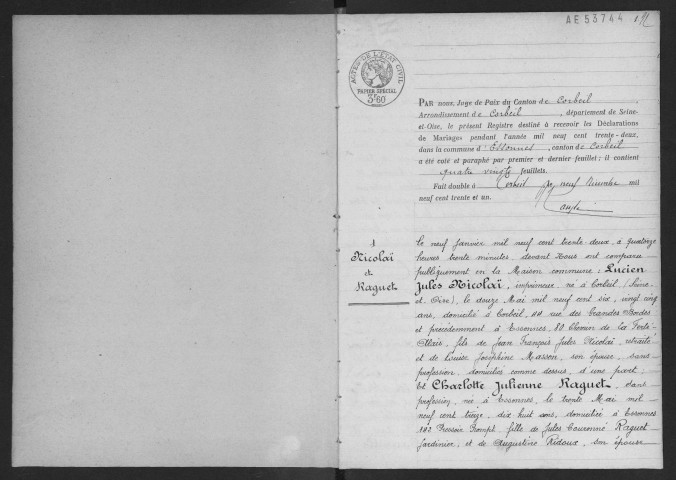 AE 53744
ACTES DE L'ÉTAT CIVIL
PAPIER SPÉCIAL
3F60
PAR nous, Juge de Paix du Canton de Corbeil
Arrondissement de Corbeil, département de Seine-
et-Oise, le présent Registre destiné à recevoir les Déclarations
de Mariages pendant l'année mil neuf cent trente-deux,
dans la commune d'Essonnes, canton de Corbeil
a été coté et paraphé par premier et dernier feuillet; il contient
quatre vingts feuillets.
Fait double à Corbeil neuf mil
neuf cent trente et un.
1
Nicolaï
et
Raguet
Le neuf Janvier mil neuf cent trente-deux, à quatorze
heures trente minutes, devant Nous ont comparu
publiquement en la Maison commune: Lucien
Jules Nicolaï, imprimeur, né à Corbeil (Seine-
et-Oise), le douze Mai mil neuf cent six, vingt cinq
ans, domicilié à Corbeil, rue des Grandes Bordes
et précédemment à Essonnes, 80 Chemin de la Ferté-
Alais, fils de Jean François Jules Nicolaï, retraité
et de Louise Joséphine Masson, son épouse, sans
profession, domiciliés comme dessus, d'une part;
Et Charlotte Julienne Raguet, sans
profession, née à Essonnes, le trente Mai mil
neuf cent treize, dix huit ans, domiciliée à Essonnes
182 Pressoir Prompt, fille de Jules Raguet
Jardinier, et de Augustine Ridoux, son épouse